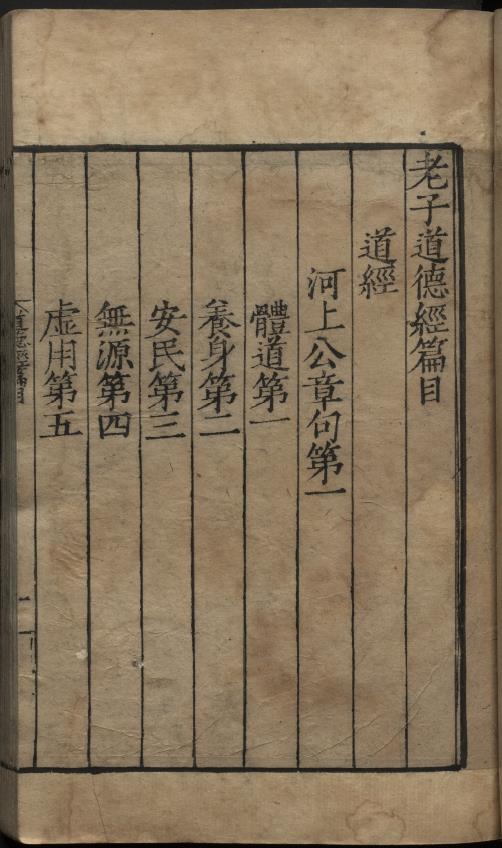 老子道德經篇目
道經
河上公章句第一
體道第一
養身第二
安民第三
無源第四
虛用第五